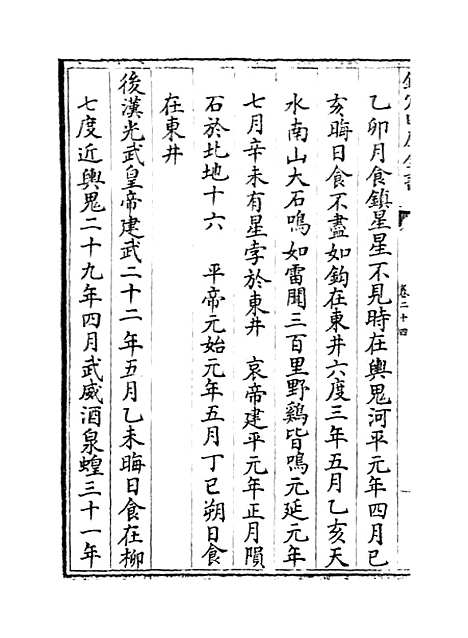 欽定四庫全書
卷二十四
乙卯月食鎮星星不見時在輿鬼河平元年四月已
亥晦日食不盡如鈎在東井六度三年五月乙亥天
水南山大石鳴如雷聞三百里野鷄皆鳴元延元年
七月辛未有星孛於東井　哀帝建平元年正月隕
石於北地十六　平帝元始元年五月丁已朔日食
在東井
後漢光武皇帝建武二十二年五月乙未晦日食在柳
七度近輿鬼二十九年四月武威酒泉蝗三十一年